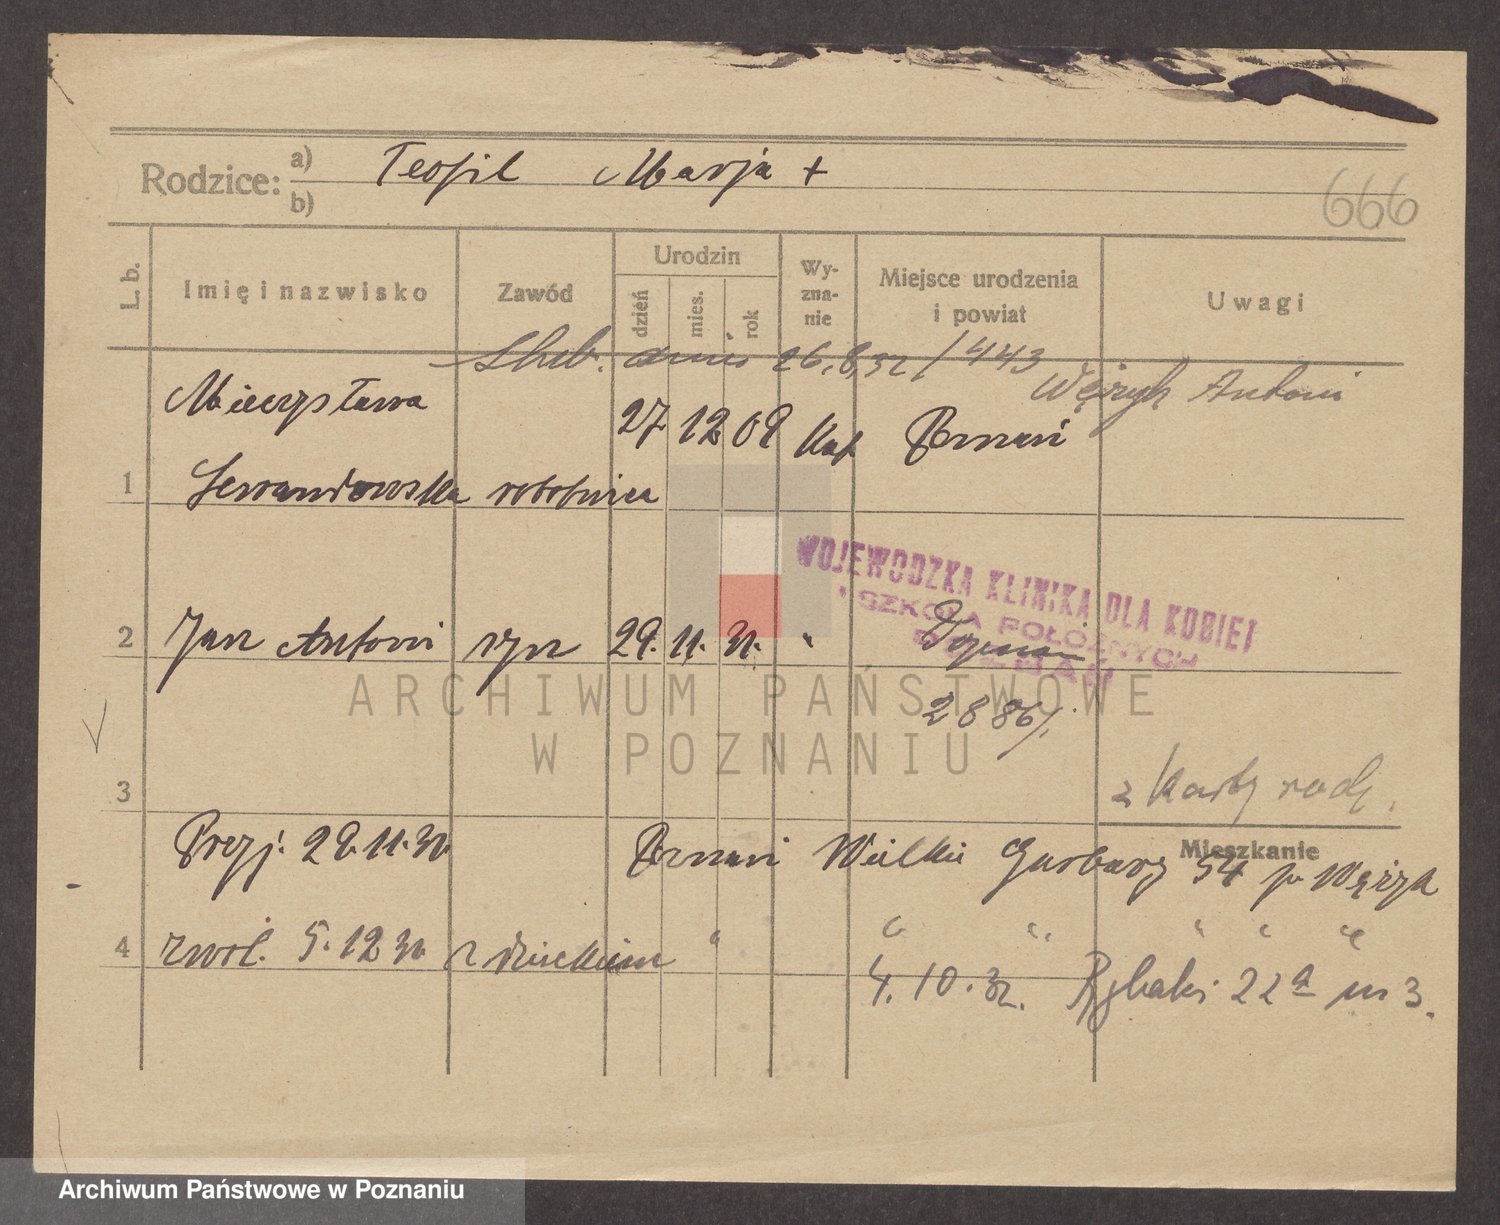 Rodzice: a) b) Teofil Marja +
666
L. b. Imię i nazwisko Zawód Urodzin dzień mies. rok Wy-zna-nie Miejsce urodzenia i powiat Uwagi
26.8.32 / 443
Antoni
Mieczysława 27 12 09 Kat Poznań
1 robotnica
WOJEWODZKA KLINIKA DLA KOBIET
I SZKOŁA POŁOŻNYCH
POZNAŃ
2 Jan Antoni syn 29. 11. 31. " Poznań
ARCHIWUM PAŃSTWOWE
2886/
W POZNANIU
3 z Karty rodz.
Mieszkanie
Przyj. 29.11.31 Poznań Wielkie Garbary 54 p. Węzyk
4 zwol. 5.12 31 z dzieckiem " " " " " "
4.10.32. Rybaki 22a m 3.
Archiwum Państwowe w Poznaniu